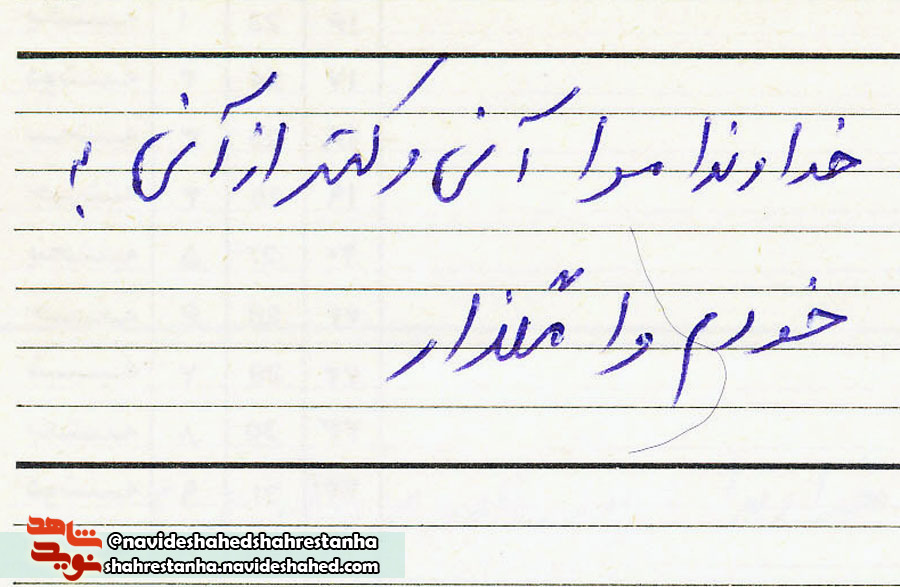 خداوندا مرا آنی و کمتر از آنی به
خودم وا مگذار
نوید شاهد
@navideshahedshahrestanha
shahrestanha.navideshahed.com